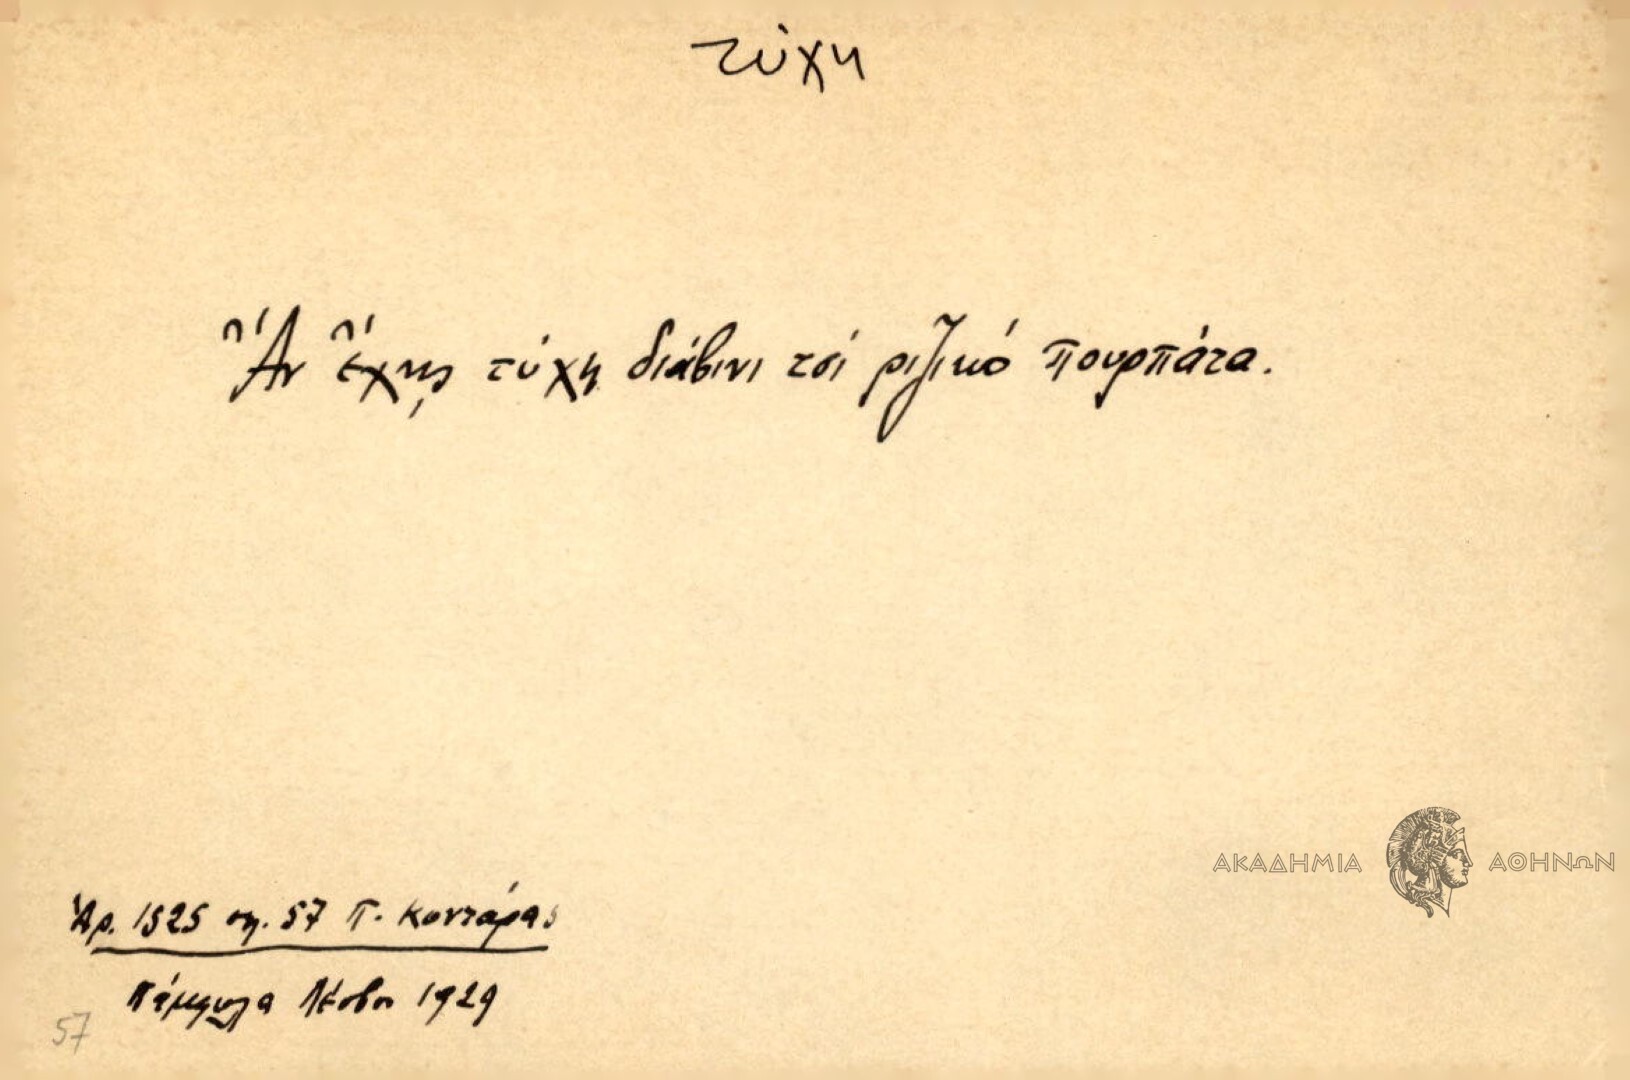 τύχη
Ἂν ἔχῃς τύχη διάβινι τσί ριζικό πουρπάτα.
ΑΚΑΔΗΜΙΑ ΑΘΗΝΩΝ
Ἀρ. 1525 ση. 57 Π. Κοντάρας
Πάμφυλα Λέσβου 1929
57